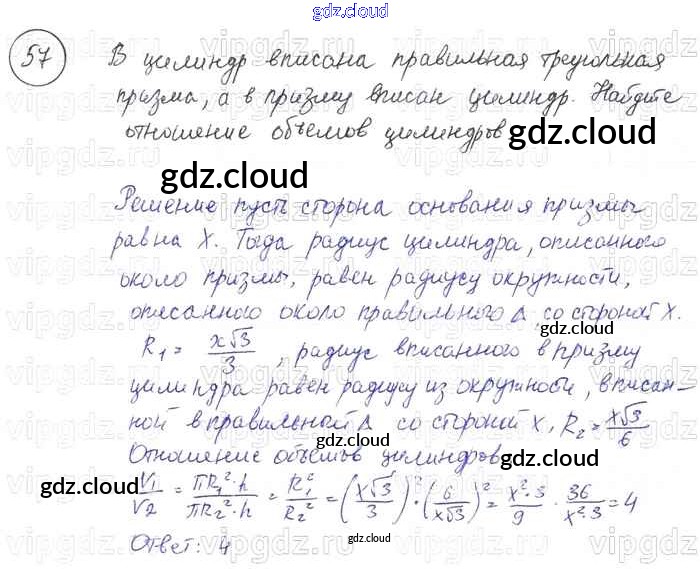 gdz.cloud
57 В цилиндр вписана правильная треугольная
призма, а в призму вписан цилиндр. Найдите
отношение объемов цилиндров
gdz.cloud
gdz.cloud
Решение пусть сторона основания призмы
равна X. Тогда радиус цилиндра, описанного
около призмы, равен радиусу окружности,
описанного около правильного Δ со стороной X.
gdz.cloud
R₁ = x√3/3, радиус вписанного в призму
цилиндра равен радиусу из окружности, вписан-
ной в правильный Δ со стороной X, R₂ = x√3/6
gdz.cloud
Отношение объемов цилиндров
V₁/V₂ = πR₁²·h/πR₂²·h = R₁²/R₂² = (x√3/3)²·(6/x√3)² = x²·3/9 · 36/x²·3 = 4
gdz.cloud
gdz.cloud
Ответ: 4
gdz.cloud
vipgdz.ru